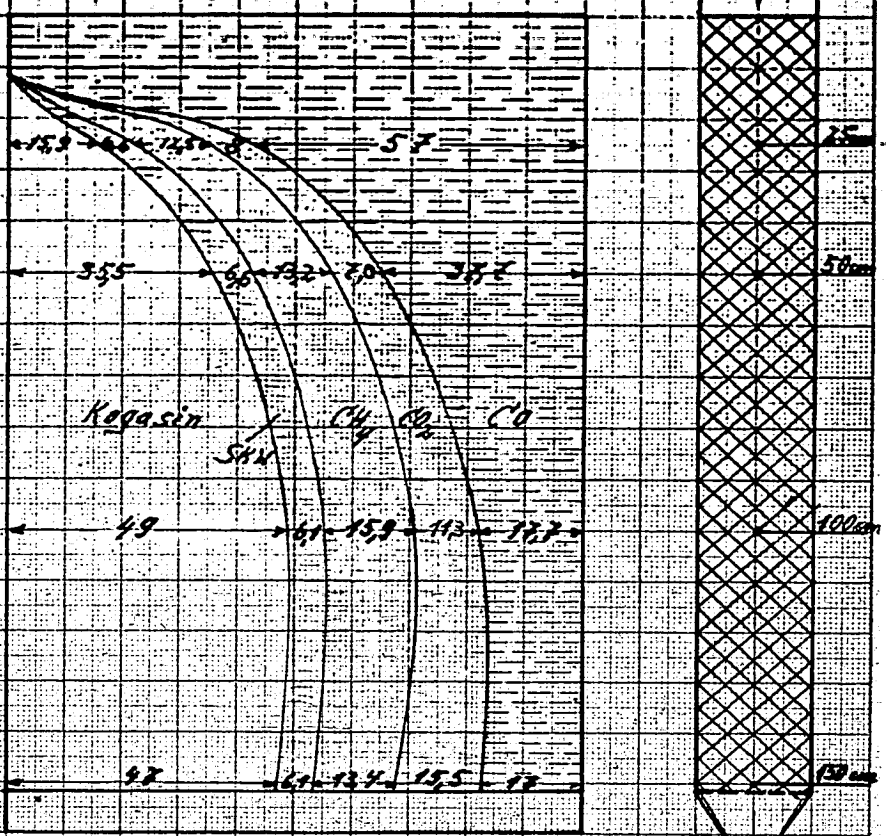 15,9 6,6 12,5 8 57 25cm
35,5 6,6 13,2 7,0 37,7 50cm
Kogasin CH4 CO2 CO
SKW
49 6,1 15,9 11,3 17,7 100cm
47 6,1 13,4 15,5 17 150cm